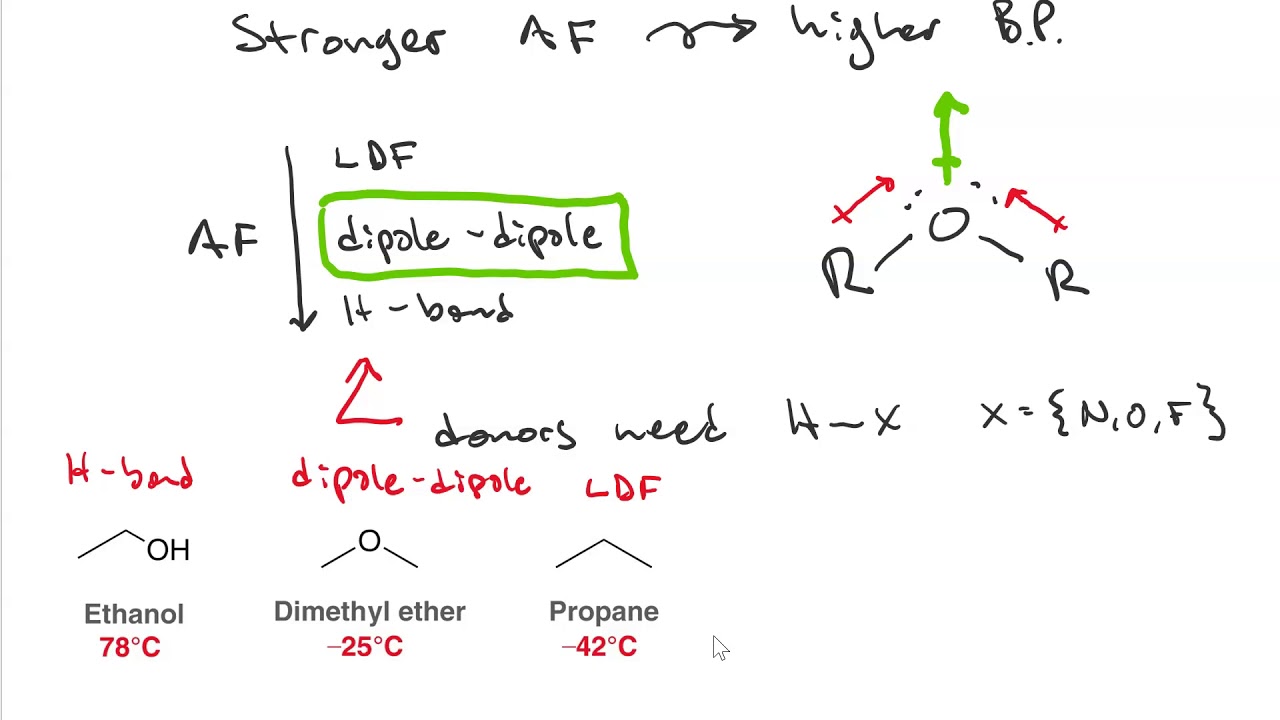 Stronger AF → higher B.P.
LDF
AF
dipole - dipole
H - bond
O
R R
donors need H - X X = {N, O, F}
H - bond dipole - dipole LDF
OH O
Ethanol Dimethyl ether Propane
78°C –25°C –42°C